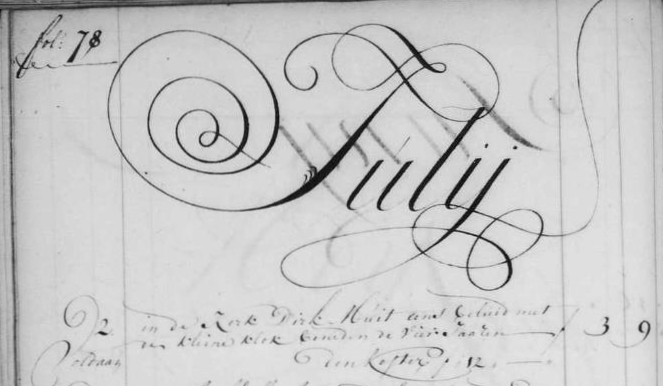 fol: 78
Julij
2 in de Kerk Dirk Muit eens beluid met
de kleine klok beneden de vier Jaaren 3 9
Soldaay den Koster f 12